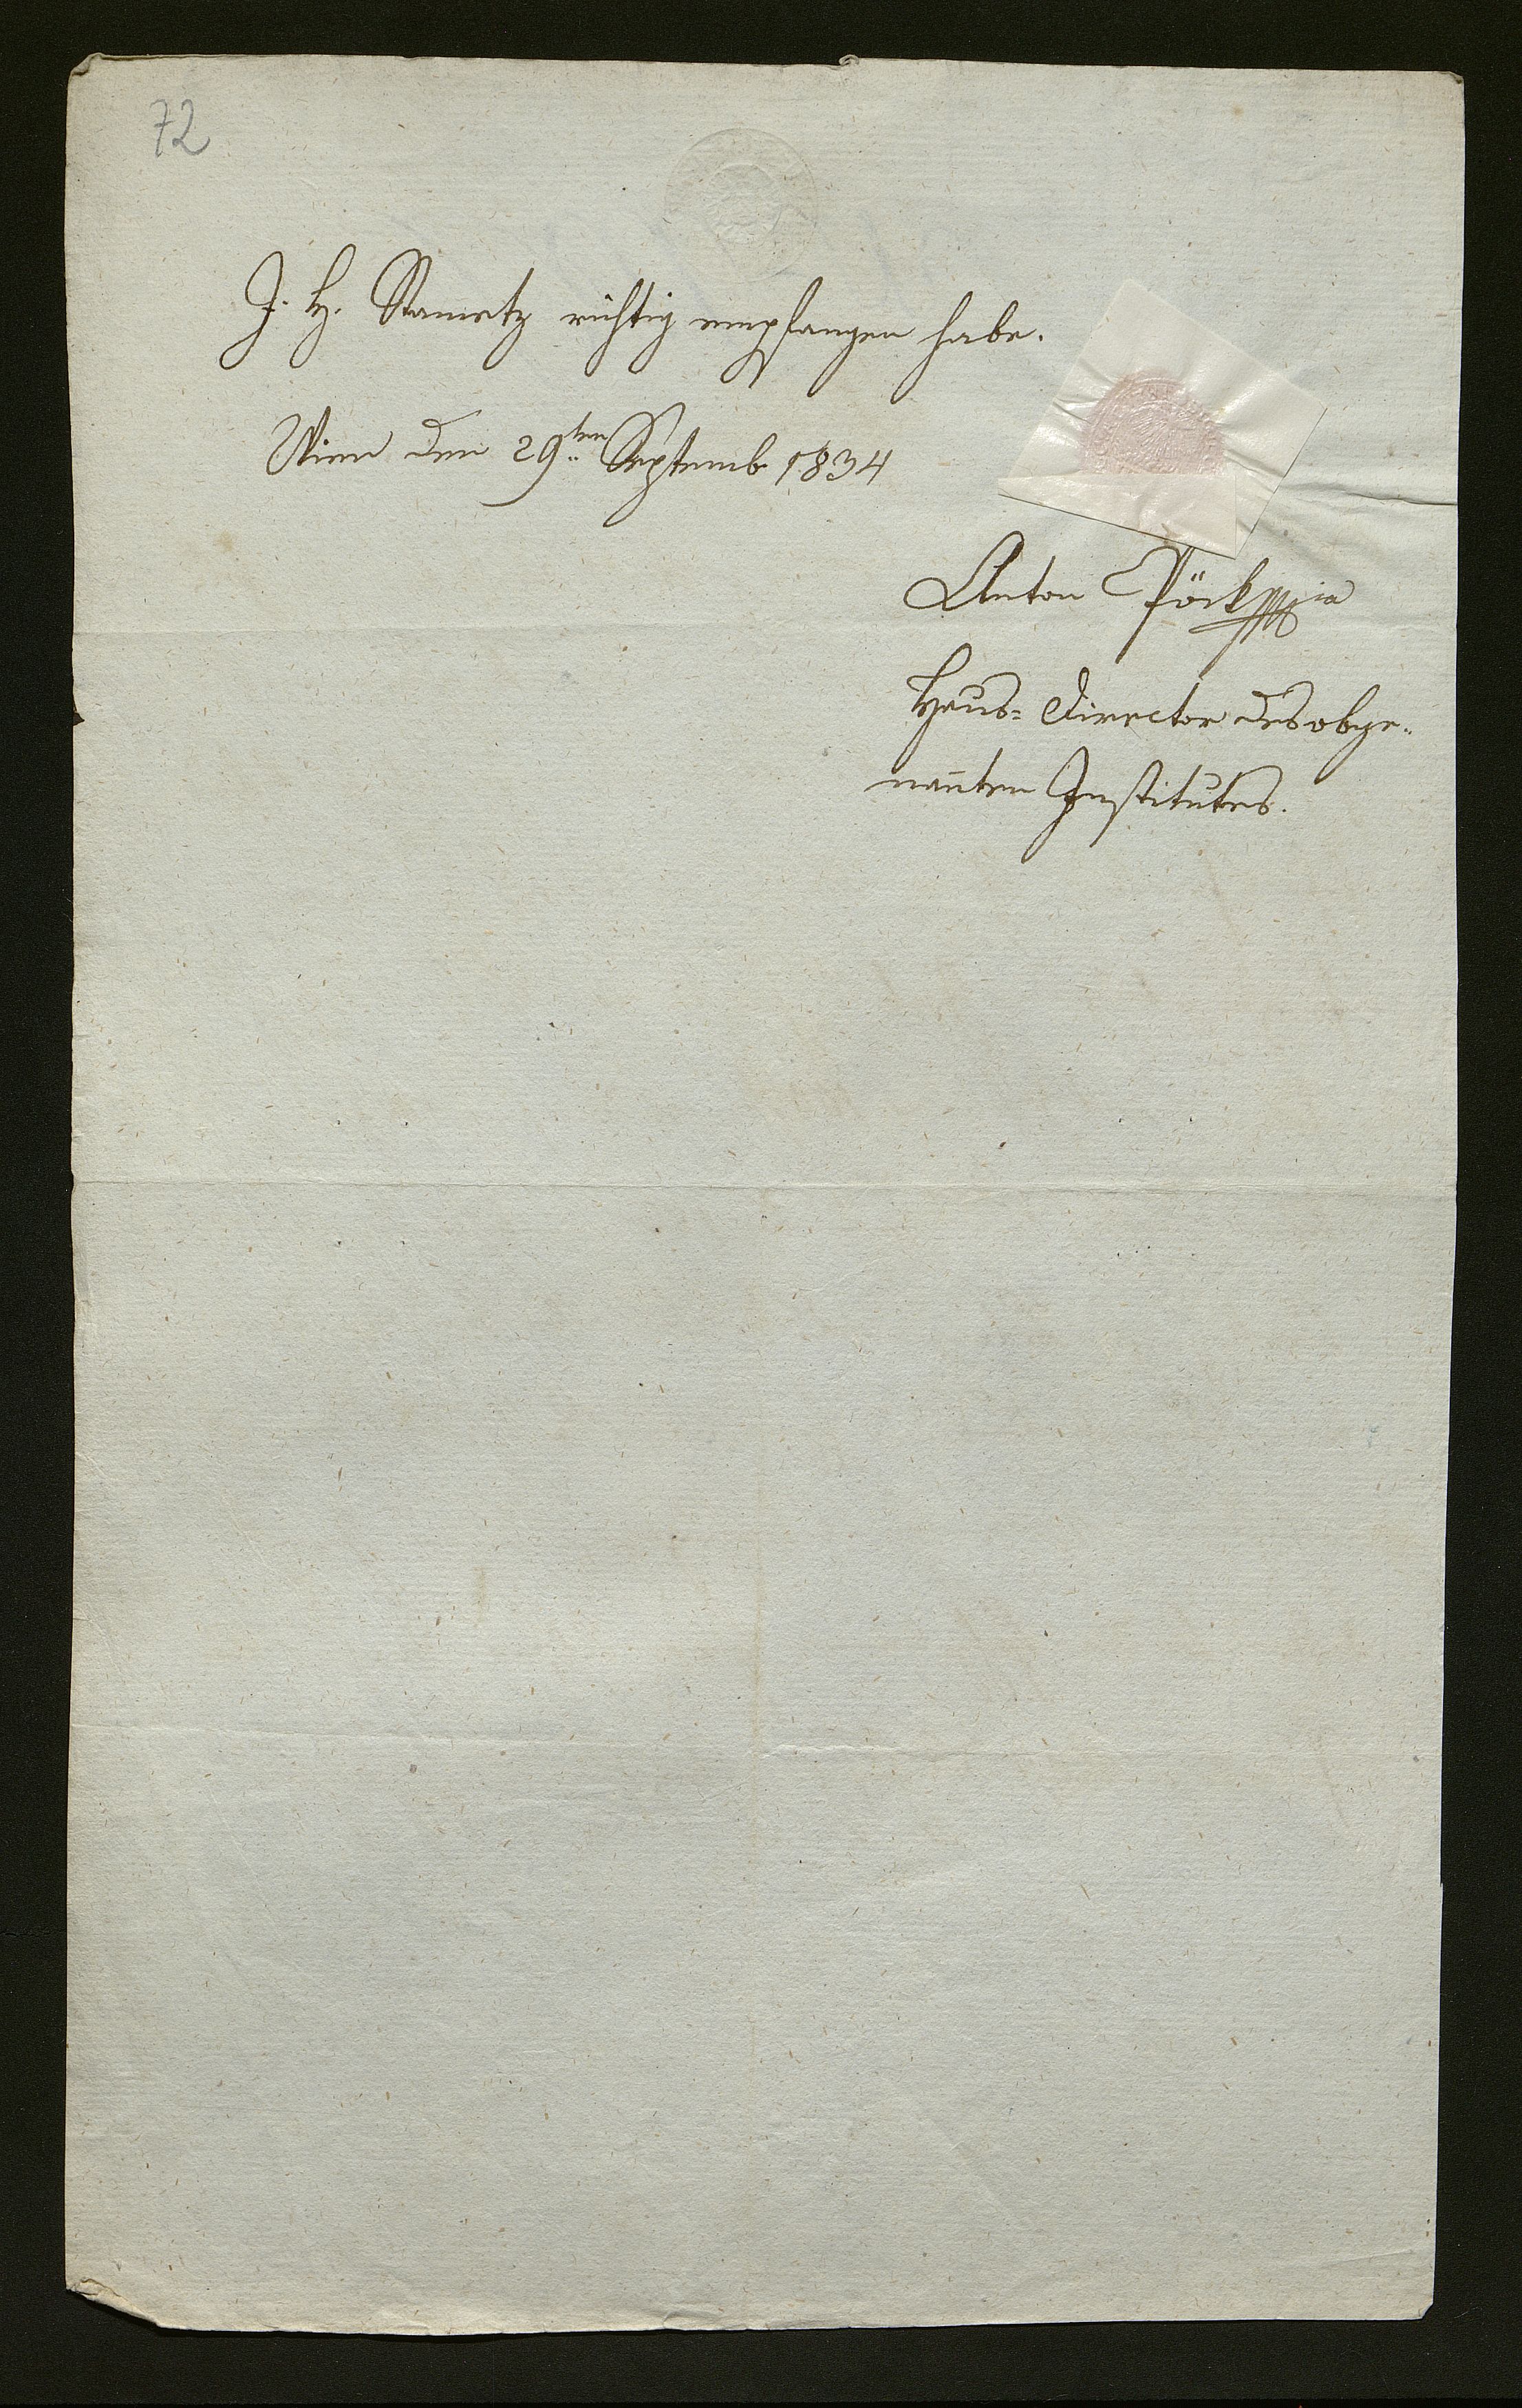 72
J. H. Stametz richtig empfangen habe.
Wien den 29ten Septemb 1834
Anton Pöck mpia
Haus= Director des obge„
nan̄ten Institutes.